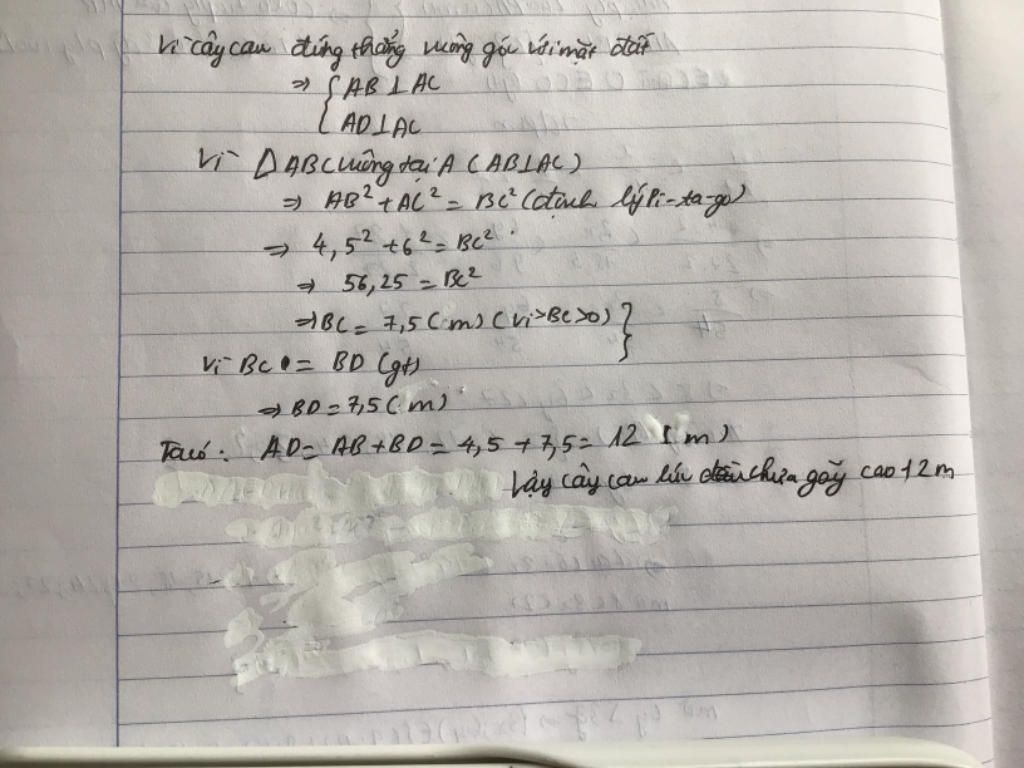 Vì cây cau đứng thẳng vuông góc với mặt đất
⇒ { AB ⊥ AC
AD ⊥ AC
Vì ΔABC vuông tại A (AB ⊥ AC)
⇒ AB² + AC² = BC² (định lý Pi-ta-go)
⇒ 4,5² + 6² = BC²
⇒ 56,25 = BC²
⇒ BC = 7,5 (m) (vì BC > 0) }
Vì BC = BD (gt)
⇒ BD = 7,5 (m)
Ta có: AD = AB + BD = 4,5 + 7,5 = 12 (m)
Vậy cây cau lúc chưa gãy cao 12 m